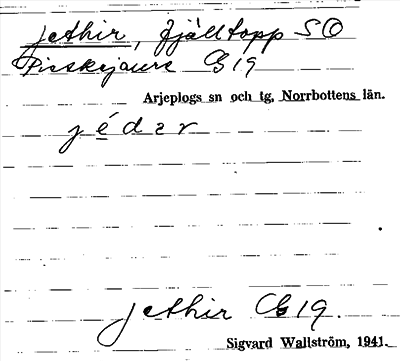 Jethir, fjälltopp SO
Pisskejaure G 19
Arjeplogs sn och tg, Norrbottens län.
jédar
Jethir G 19.
Sigvard Wallström, 1941.